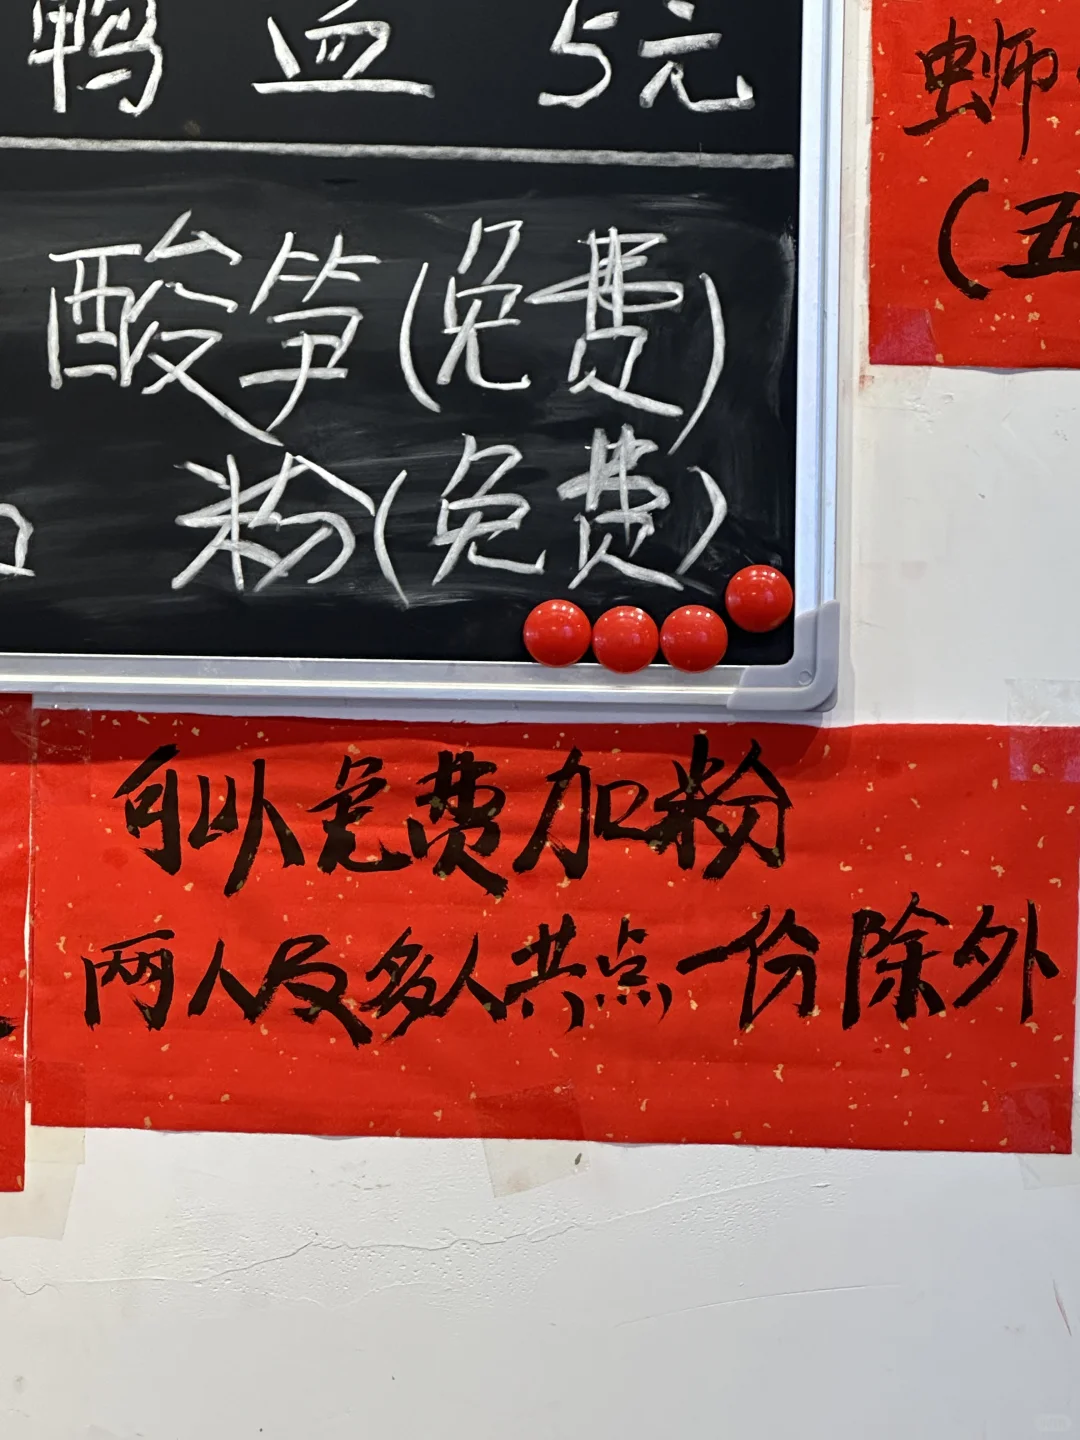 鸭血 5元
酸笋(免费)
粉(免费)
蛳
(五
可以免费加粉
两人及多人共点一份除外